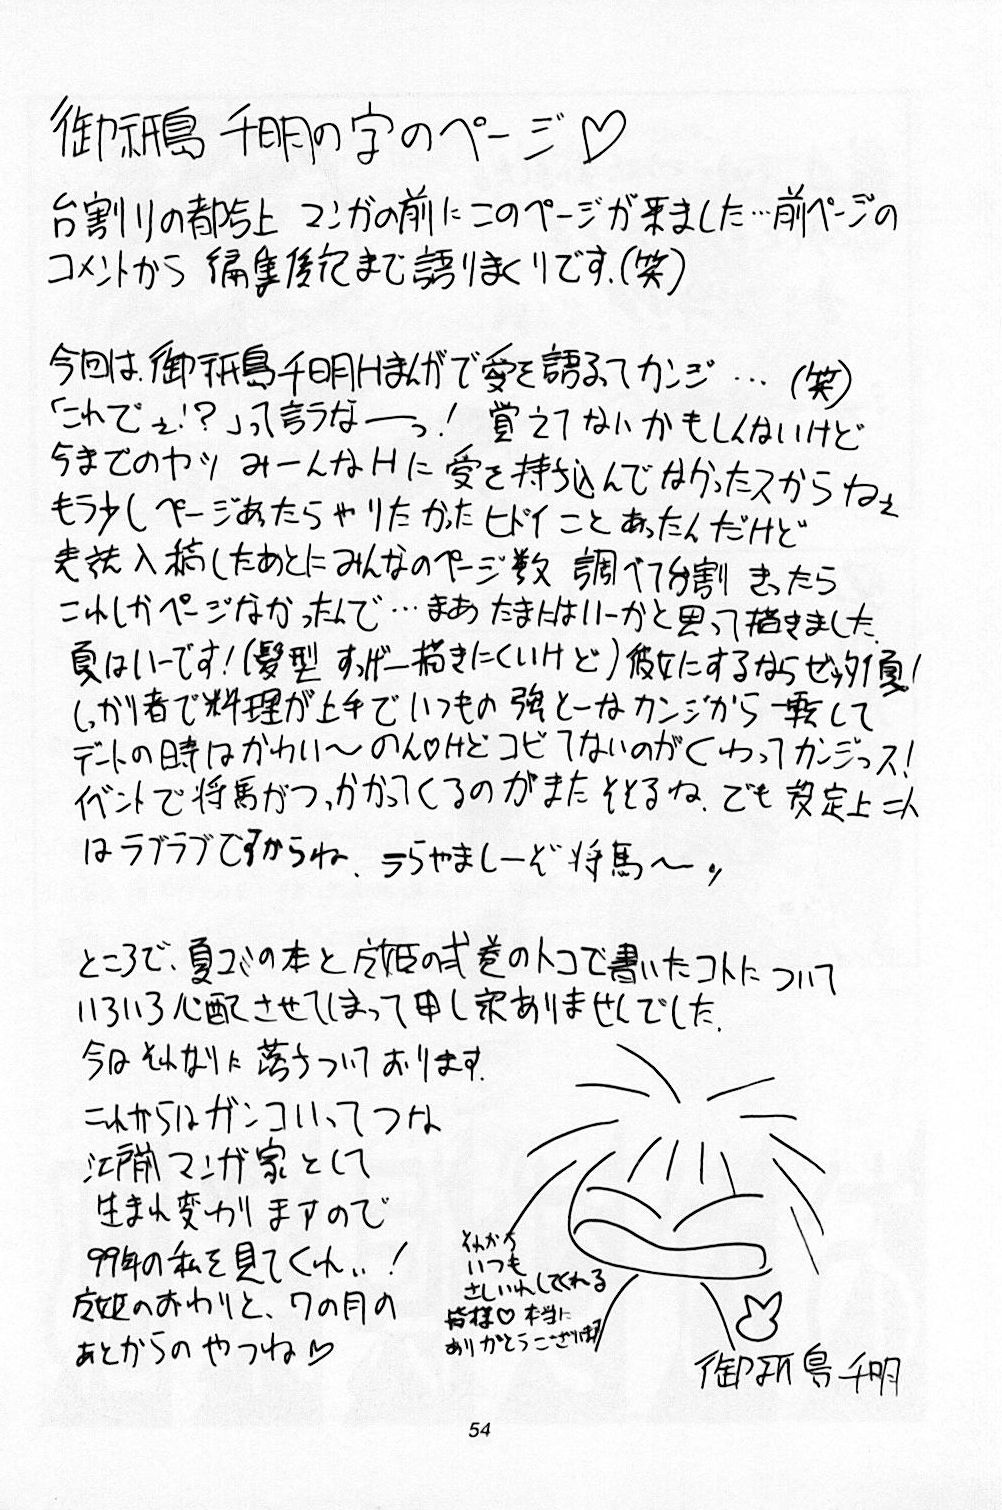 御祇島 千明の字のページ♡
台割りの都合上 マンガの前にこのページが来ました…前ページの
コメントから 編集後記まで語りまくりです.(笑)
今回は、御祇島千明Hまんがで愛を語るってカンジ…(笑)
「これでぇ!?」って言うなーっ! 覚えてないかもしんないけど
今までのヤツ みーんなHに愛を持ち込んでなかったスからねぇ
もう少しページあったらやりたかったヒドイことあったんだけど
表紙入稿したあとにみんなのページ数 調べて台割 きったら
これしかページなかったんで…まあ たまにはいーかと思って描きました.
夏はいーです!(髪型 すっげー描きにくいけど)彼女にするならゼッタイ夏!
しっかり者で料理が上手でいつもの強とーなカンジから一転して
デートの時はかわい〜のん♡けどコビてないのがくわってカンジっス!
イベントで将馬がつっかかってくるのがまたそそるね.でも設定上二人
はラブラブですからね. うらやましーぞ将馬〜〃
ところで、夏コミの本と 姫の弐巻のトコで書いたコトについて
いろいろ心配させてしまって申し訳ありませんでした.
今はそれなりに落ちついております.
これからはガンコいってつな
江戸前マンガ家として
生まれ変わりますので
99年の私を見てくれ…!
姫のおわりと、ワの月の
あとからのやつね♡
それから
いつも
さしいれしてくれる
皆様♡本当に
ありがとうございます
御祇島千明
54